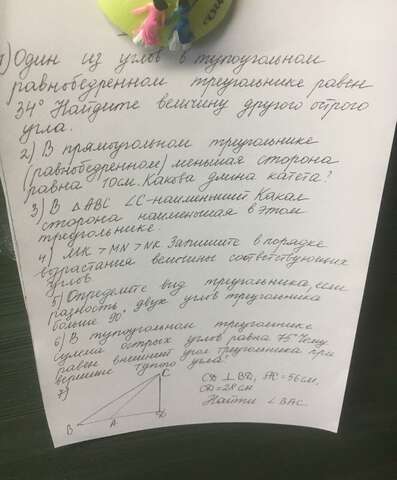 1) Один из углов в тупоугольном
равнобедренном треугольнике равен
34° Найдите величину другого острого
угла.
2) В прямоугольном треугольнике
(равнобедренном) меньшая сторона
равна 10см. Какова длина катета?
3) В △ABC ∠C-наименьший Какая
сторона наименьшая в этом
треугольнике.
4) MK > MN > NK Запишите в порядке
возрастания величины соответствующих
углов
5) Определите вид треугольника, если
разность двух углов треугольника
больше 90°
6) В тупоугольном треугольнике
сумма острых углов равна 75° Чему
равен внешний угол треугольника при
вершине тупого угла?
7)
C
CD ⊥ BD, AC = 56см,
CD = 28 см
Найти ∠BAC
B A D